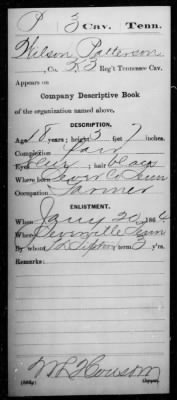 P 3 Cav. Tenn.
Wilson Patterson
, Co. 3 Reg't Tennessee Cav.
Appears on
Company Descriptive Book
of the organization named above.
DESCRIPTION.
Age 18 years; height 5 feet 7 inches.
Complexion Fair
Eyes ; hair black
Where born Sevier Co Tenn
Occupation Farmer
ENLISTMENT.
When Jany 20, 1864.
Where Tenn
By whom term 3 y'rs.
Remarks:
Copyist.